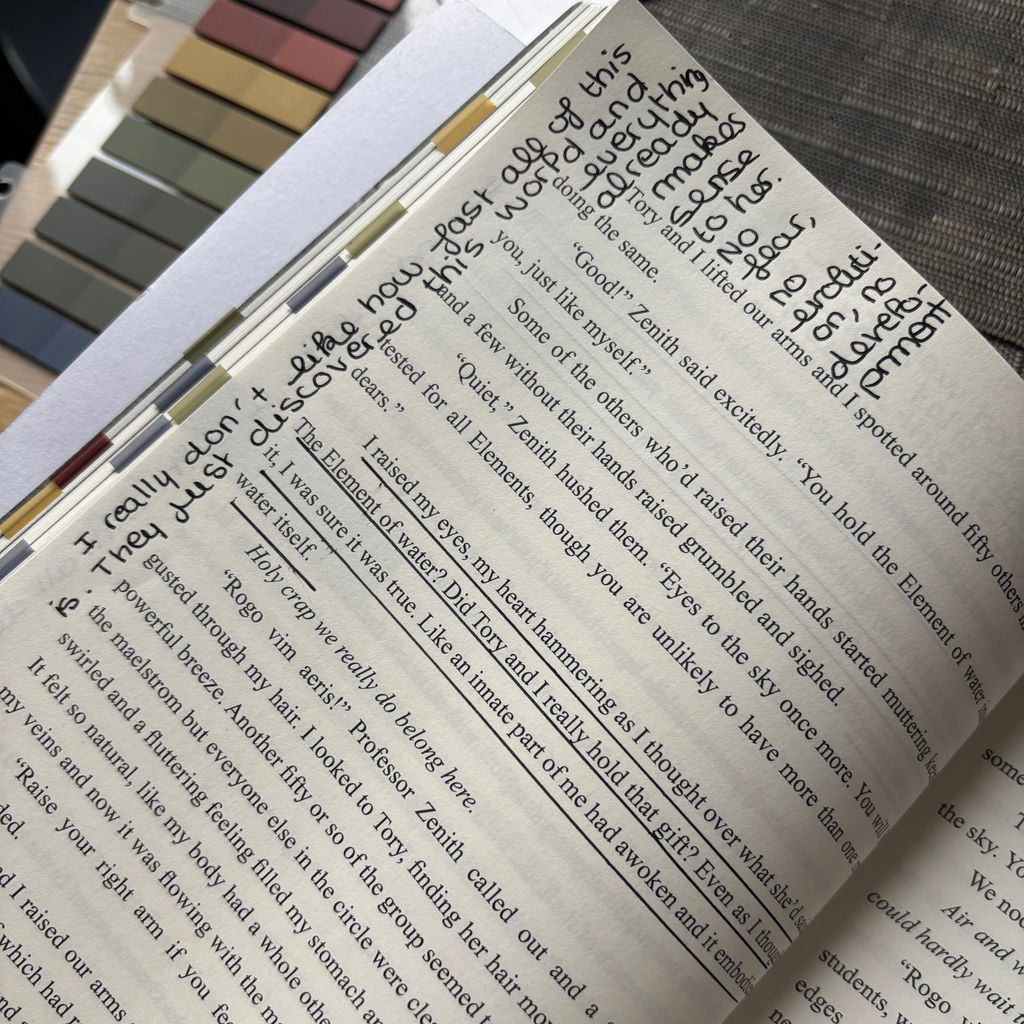 I really don't like how fast all of this
is. They just discovered this world and
everything
already
makes
sense
to her.
no
evoluti-
on, no
develo-
pment
Tory and I lifted our arms and I spotted around fifty others
doing the same.
"Good!" Zenith said excitedly. "You hold the Element of water
you, just like myself."
Some of the others who'd raised their hands started muttering
and a few without their hands raised grumbled and sighed.
"Quiet," Zenith hushed them. "Eyes to the sky once more. You will
tested for all Elements, though you are unlikely to have more than one
dears."
I raised my eyes, my heart hammering as I thought over what she'd
The Element of water? Did Tory and I really hold that gift? Even as I
it, I was sure it was true. Like an innate part of me had awoken and it
water itself.
Holy crap we really do belong here.
"Rogo vim aeris!" Professor Zenith called out and a
gusted through my hair. I looked to Tory, finding her hair
powerful breeze. Another fifty or so of the group seemed
the maelstrom but everyone else in the circle were
swirled and a fluttering feeling filled my stomach
It felt so natural, like my body had a whole
my veins and now it was flowing with the
"Raise your right arm if you
I raised our arms
which had
some
the sky.
We
Air and
could hardly wait
"Rogo
students,
edges.